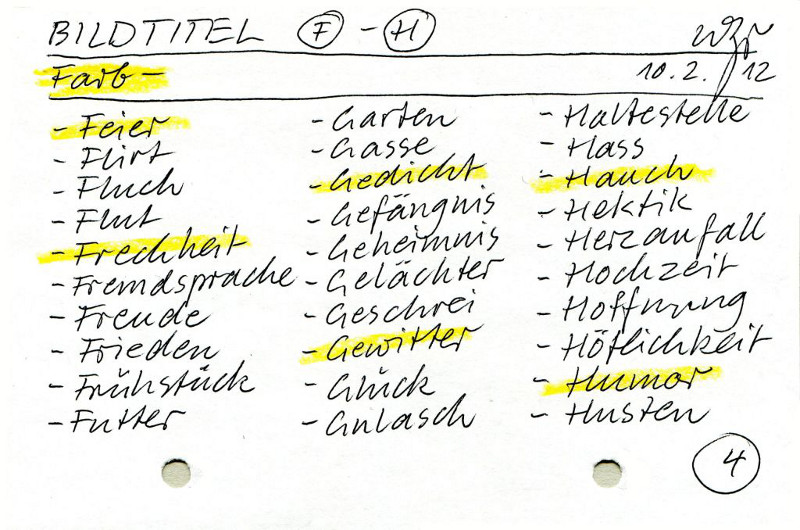 BILDTITEL F - H
Farb- 10.2.12
- Feier
- Flirt
- Fluch
- Flut
- Frechheit
- Fremdsprache
- Freude
- Frieden
- Frühstück
- Futter
- Garten
- Gasse
- Gedicht
- Gefängnis
- Geheimnis
- Gelächter
- Geschrei
- Gewitter
- Glück
- Gulasch
- Haltestelle
- Hass
- Hauch
- Hektik
- Herzanfall
- Hochzeit
- Hoffnung
- Höflichkeit
- Humor
- Husten
4